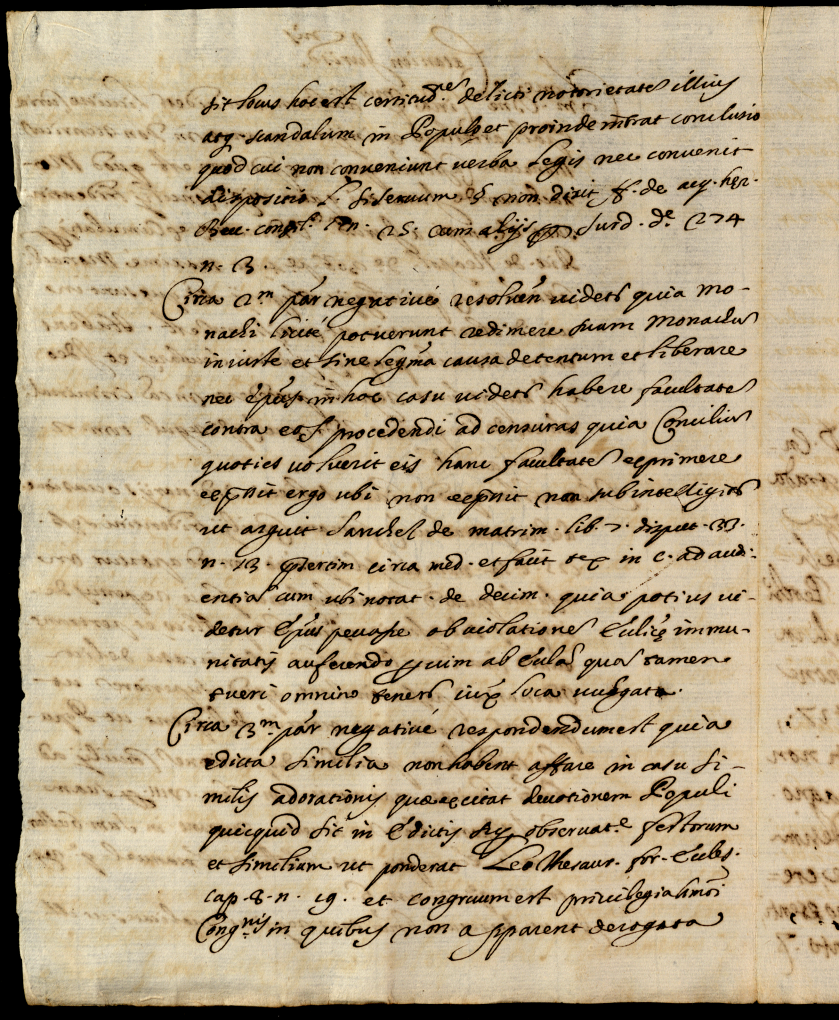 sit locus hoc est certitud.ne delicti notorietate illius
atq. scandalum in Populo et proinde intrat conclusio
quod cui non conveniunt verba Legis nec convenit
dispositio L. si servum § non dixit ff. de acq. her.
25. cum alijs Surd. de 274
n. 3.
Circa 2.m par negativé resolvēn videtr quia mo-
nachi licité potuerunt redimere suum Monachū
iniuste et sine legma causa detentum et liberare
nec Epūs in hoc casu videtr habere facultatē
contra eos procedendi ad censuras quia Conciliū
quoties voluerit eis hanc facultatē exprimere
expssit ergo ubi non expssit non subintelligitr
ut arguit Sanchez de matrim. lib. 7. disput. 33.
n. 13. prtertim circa med. et facit tex in c. ad audi-
entiā cum ubi notat. de decim. quia potius vi-
detur Epūs peccasse ob violationē Ecclię immu-
nitatis auferendo p vim ab Ecclā quā tamen
tueri omnino tenetr iux loca vulgata.
Circa 3.m par negativé respondendum est quia
edicta similia non habent affare in casu si-
milis adorationis quæ excitat devotionem Populi
quicquid sit in Edictis sup observat.e festorum
et similium ut ponderat Leo thesaur. for. Eccles.
cap. 8. n. 19. et congruum est privilegia hmōi
Cong.nis in quibus non apparent derogata